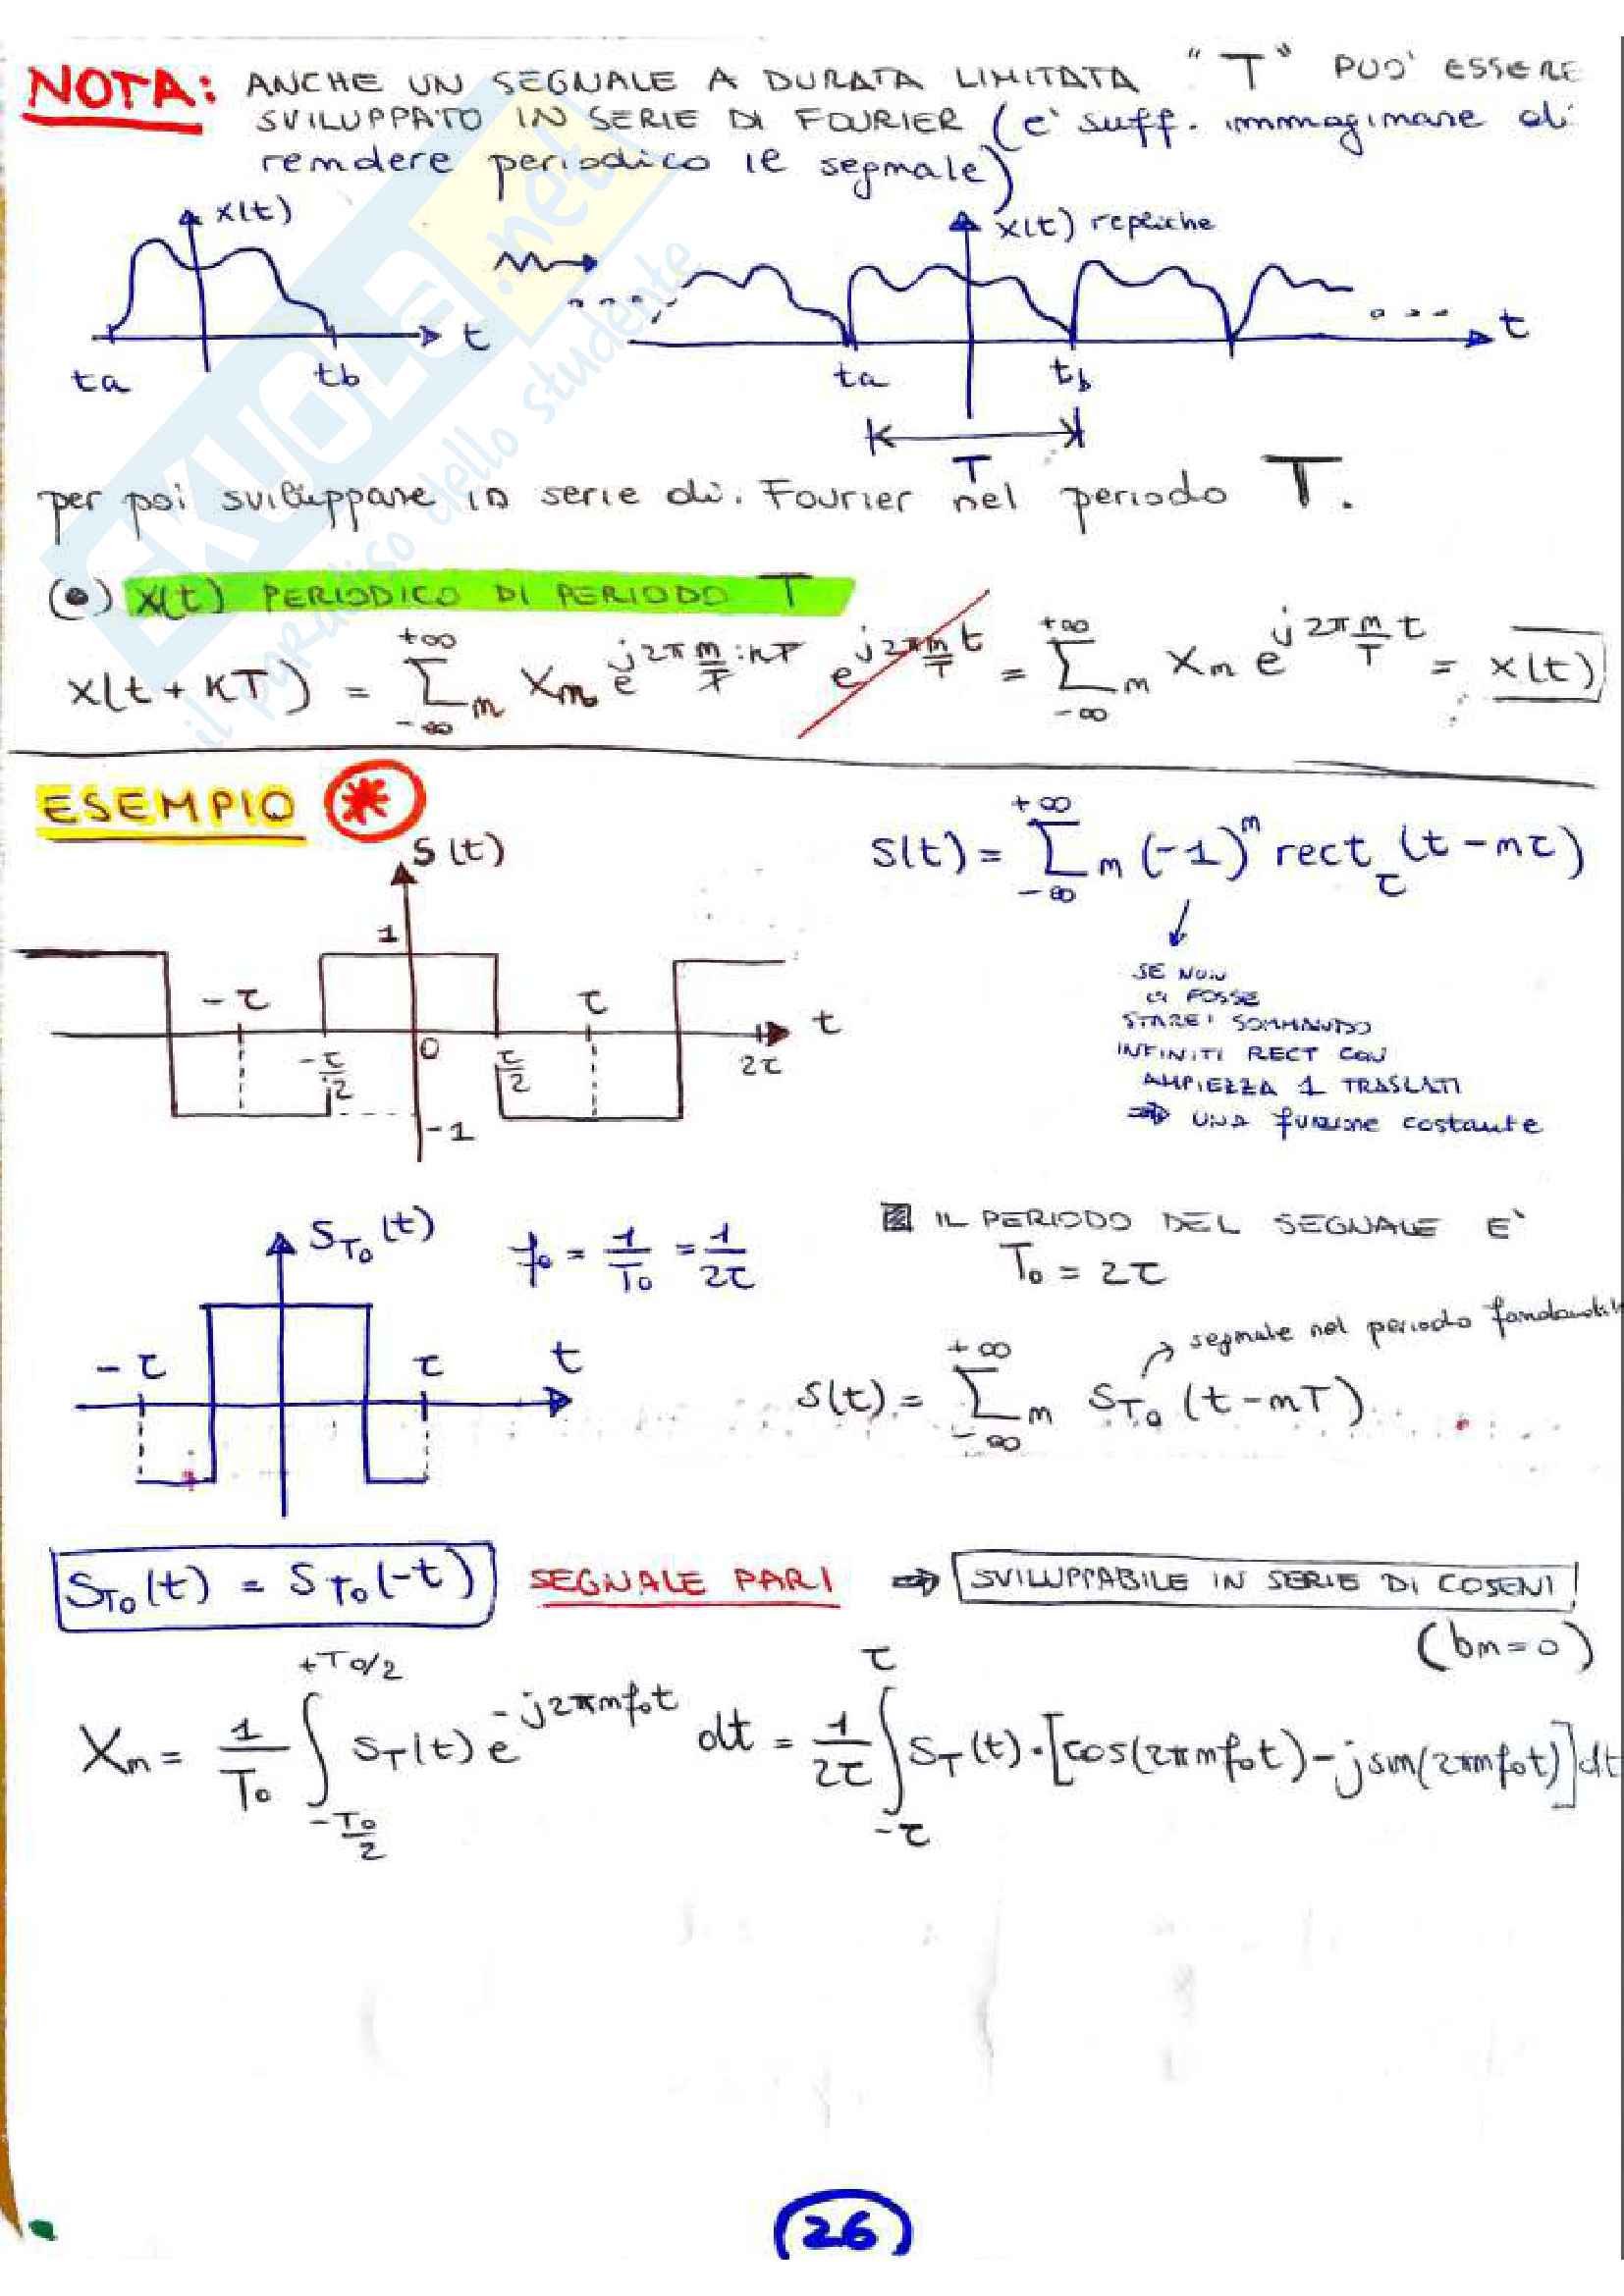 NOTA: ANCHE UN SEGNALE A DURATA LIMITATA "T" PUO' ESSERE
SVILUPPATO IN SERIE DI FOURIER (e' suff. immaginare di
rendere periodico il segnale)
x(t)
t
ta
tb
x(t) repliche
t
ta
tb
T
per poi sviluppare in serie di. Fourier nel periodo T.
(•) x(t) PERIODICO DI PERIODO T
x(t + KT) = Σ_m^{+∞}_{-∞} X_m e^{j2π m/T · KT} e^{j2π m/T t} = Σ_m^{+∞}_{-∞} X_m e^{j2π m/T t} = x(t)
ESEMPIO *
S(t)
1
-τ
τ
t
-τ/2
0
τ/2
2τ
-1
S(t) = Σ_m^{+∞}_{-∞} (-1)^m rect_τ (t - mτ)
SE NON
CI FOSSE
STAREI SOMMANDO
INFINITI RECT CON
AMPIEZZA 1 TRASLATI
⇒ UNA funzione costante
S_{T0}(t)
f0 = 1/T0 = 1/2τ
-τ
τ
t
IL PERIODO DEL SEGNALE E'
T0 = 2τ
segnale nel periodo
S(t) = Σ_m^{+∞}_{-∞} S_{T0} (t - mT)
S_{T0}(t) = S_{T0}(-t) SEGNALE PARI ⇒ SVILUPPABILE IN SERIE DI COSENI
(bm = 0)
X_m = 1/T0 ∫_{-T0/2}^{+T0/2} S_T(t) e^{-j2πmf0t} dt = 1/2τ ∫_{-τ}^{τ} S_T(t)·[cos(2πmf0t) - j sin(2πmf0t)] dt
26
SKUOLA.net
il paradiso dello studente